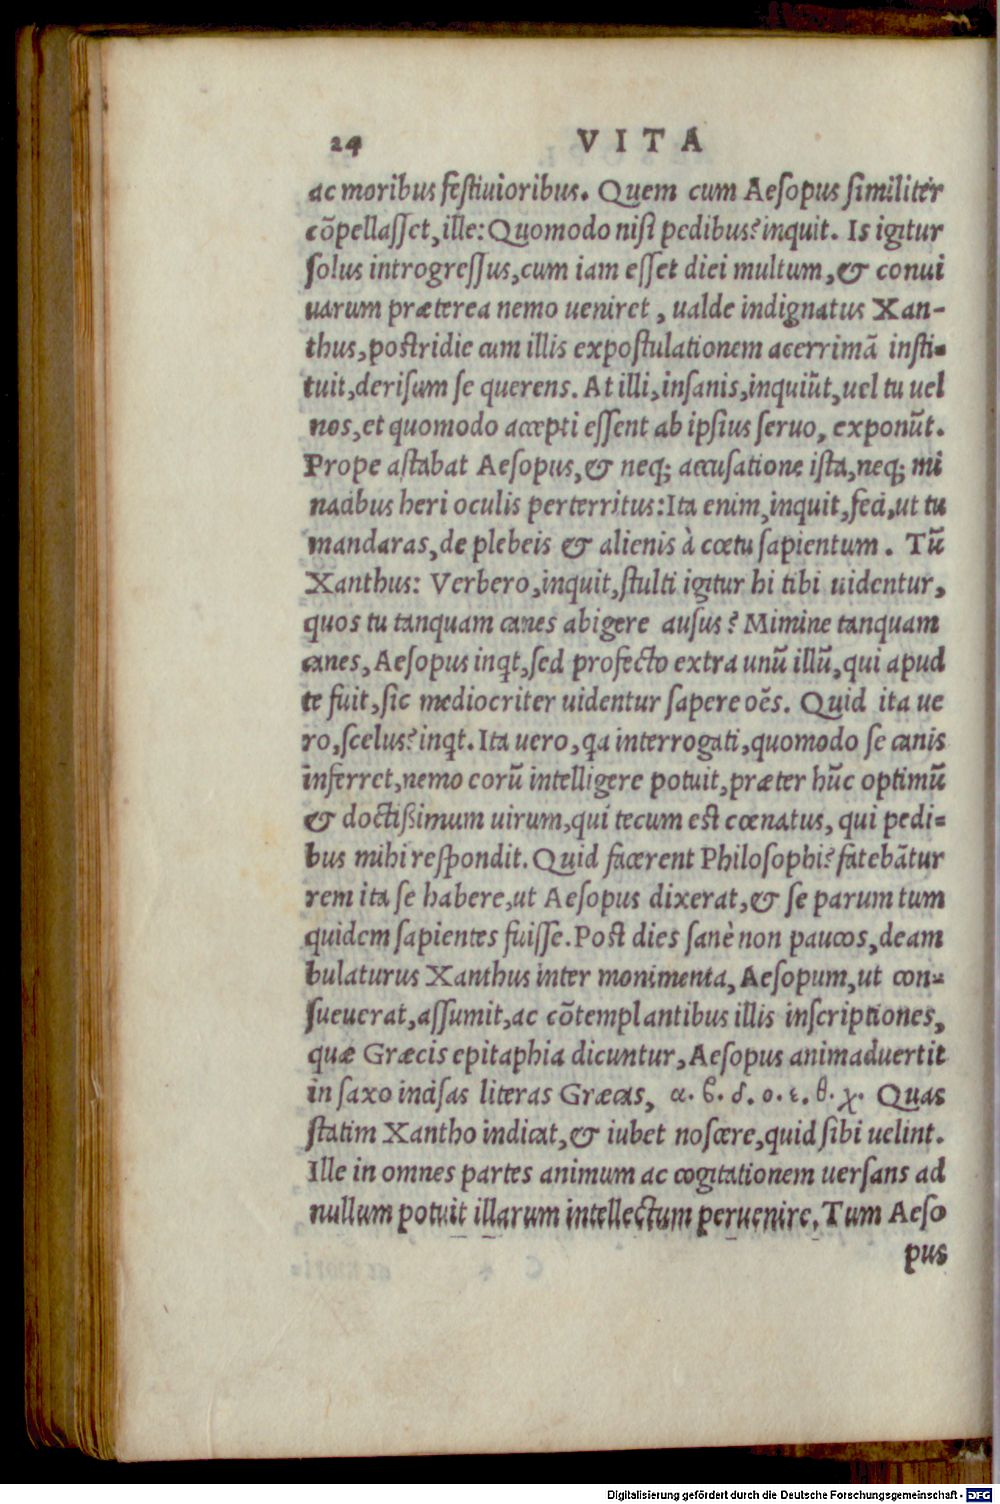 24 VITA
ac moribus festiuioribus. Quem cum Aesopus similiter
cōpellasset, ille: Quomodo nisi pedibus? inquit. Is igitur
solus introgressus, cum iam esset diei multum, & conui
uarum præterea nemo ueniret, ualde indignatus Xan-
thus, postridie cum illis expostulationem acerrimā insti-
tuit, derisum se querens. At illi, insanis, inquiūt, uel tu uel
nos, et quomodo accepti essent ab ipsius seruo, exponūt.
Prope astabat Aesopus, & neq; accusatione ista, neq; mi
nacibus heri oculis perterritus: Ita enim, inquit, feci, ut tu
mandaras, de plebeis & alienis à cœtu sapientum. Tū
Xanthus: Verbero, inquit, stulti igitur hi tibi uidentur,
quos tu tanquam canes abigere ausus? Mimine tanquam
canes, Aesopus inqt, sed profecto extra unū illū, qui apud
te fuit, sic mediocriter uidentur sapere oēs. Quid ita ue
ro, scelus? inqt. Ita uero, qa interrogati, quomodo se canis
inferret, nemo eorū intelligere potuit, præter hūc optimū
& doctißimum uirum, qui tecum est cœnatus, qui pedi-
bus mihi respondit. Quid facerent Philosophi? fatebātur
rem ita se habere, ut Aesopus dixerat, & se parum tum
quidem sapientes fuisse. Post dies sanè non paucos, deam
bulaturus Xanthus inter monimenta, Aesopum, ut con-
sueuerat, assumit, ac cōtemplantibus illis inscriptiones,
quæ Græcis epitaphia dicuntur, Aesopus animaduertit
in saxo incisas literas Græcas, α. ϐ. δ. ο. ε. θ. χ. Quas
statim Xantho indicat, & iubet noscere, quid sibi uelint.
Ille in omnes partes animum ac cogitationem uersans ad
nullum potuit illarum intellectum peruenire. Tum Aeso
pus
Digitalisierung gefördert durch die Deutsche Forschungsgemeinschaft - DFG